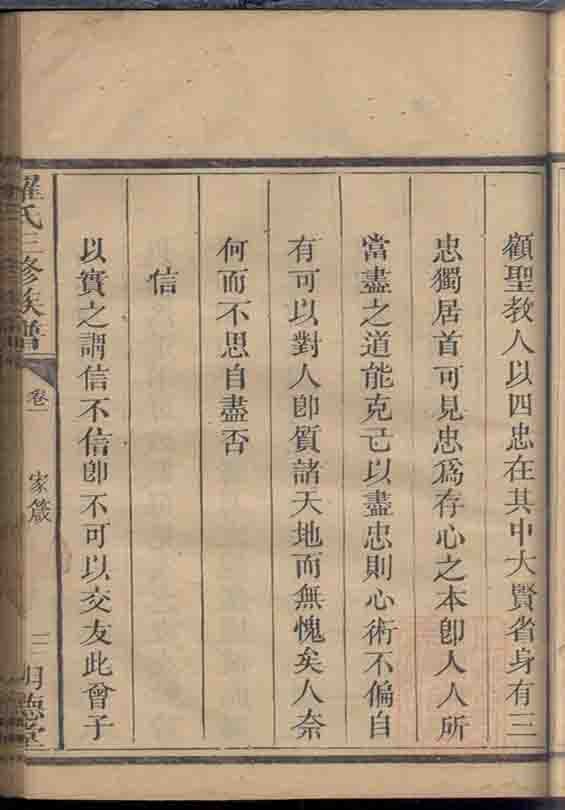 顧聖教人以四忠在其中大賢省身有三
忠獨居首可見忠爲存心之本卽人人所
當盡之道能克己以盡忠則心術不偏自
有可以對人卽質諸天地而無愧矣人奈
何而不思自盡否
信
以實之謂信不信卽不可以交友此曾子
羅氏三修族譜
卷一
家箴
三
明德堂